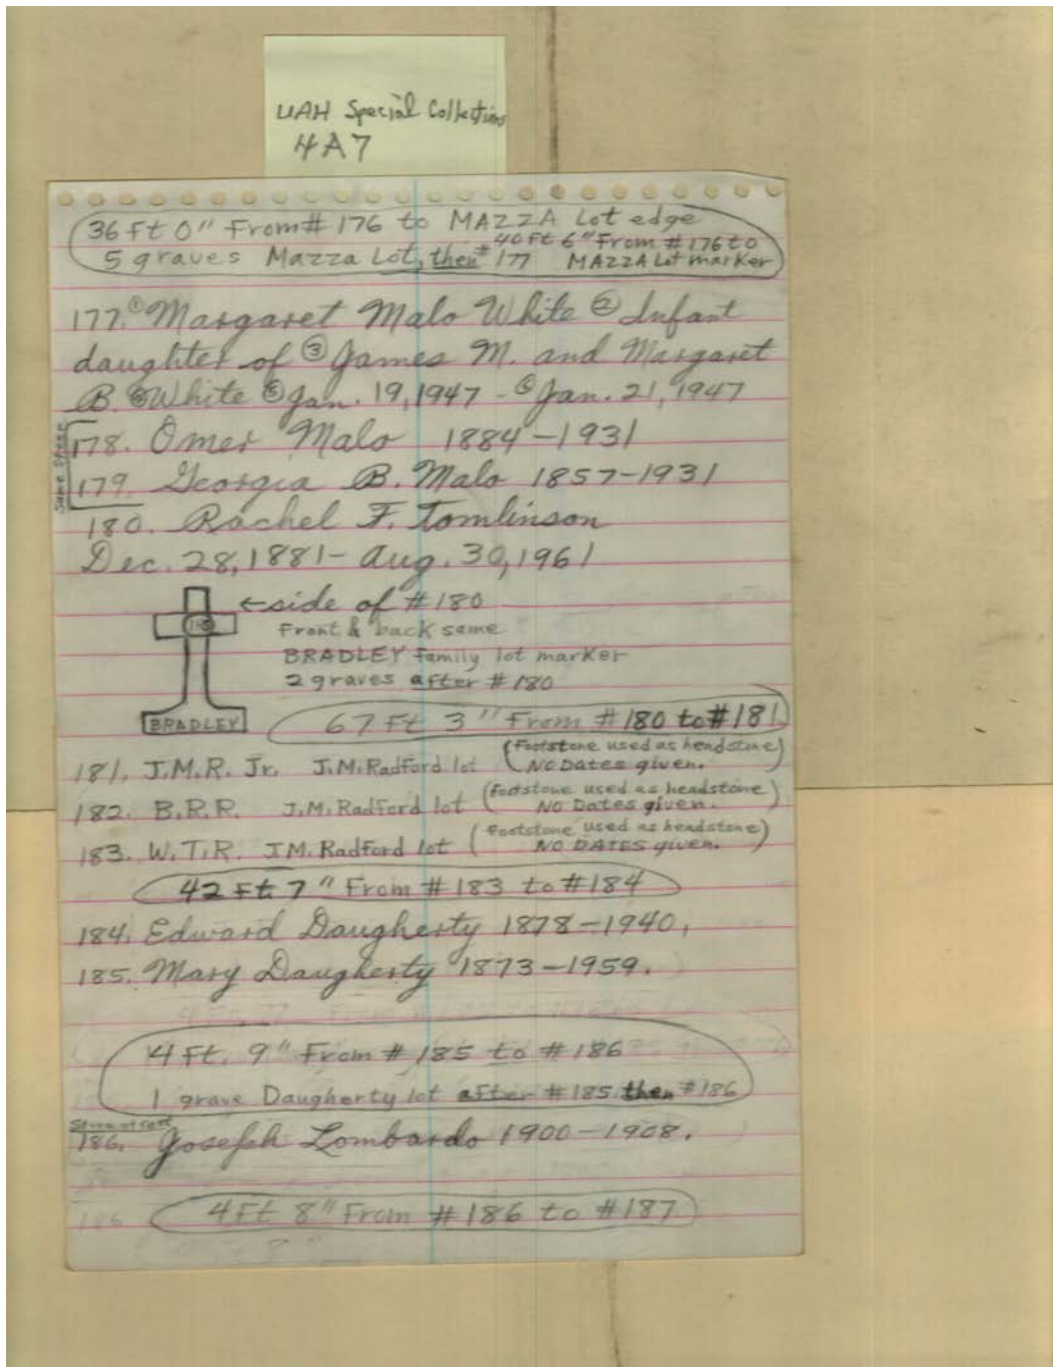 UAH Special Collections
4A7
36 Ft 0" From # 176 to MAZZA Lot edge
40 Ft 6" From # 176 to
5 graves Mazza Lot, then # 177 MAZZA Lot marker
177. ① Margaret Malo White ② Infant
daughter of ③ James M. and Margaret
B. ④ White ⑤ Jan. 19, 1947 - ⑥ Jan. 21, 1947
Same Stone
178. Omer Malo 1884-1931
179. Georgia B. Malo 1857-1931
180. Rachel F. Tomlinson
Dec. 28, 1881- Aug. 30, 1961
←side of # 180
Front & back same
BRADLEY family lot marker
2 graves after # 180
BRADLEY
67 Ft 3" From # 180 to # 181
181. J.M.R. Jr. J.M. Radford lot (Footstone used as headstone)
NO Dates given.
182. B.R.R. J.M. Radford lot (Footstone used as headstone)
NO Dates given.
183. W.T.R. J.M. Radford lot (Footstone used as headstone)
NO DATES given.
42 Ft 7" From # 183 to # 184
184. Edward Daugherty 1878-1940.
185. Mary Daugherty 1873-1959.
4 Ft. 9" From # 185 to # 186
1 grave Daugherty lot after # 185 then # 186
186. Joseph Lombardo 1900-1908.
186
4 Ft 8" From # 186 to # 187